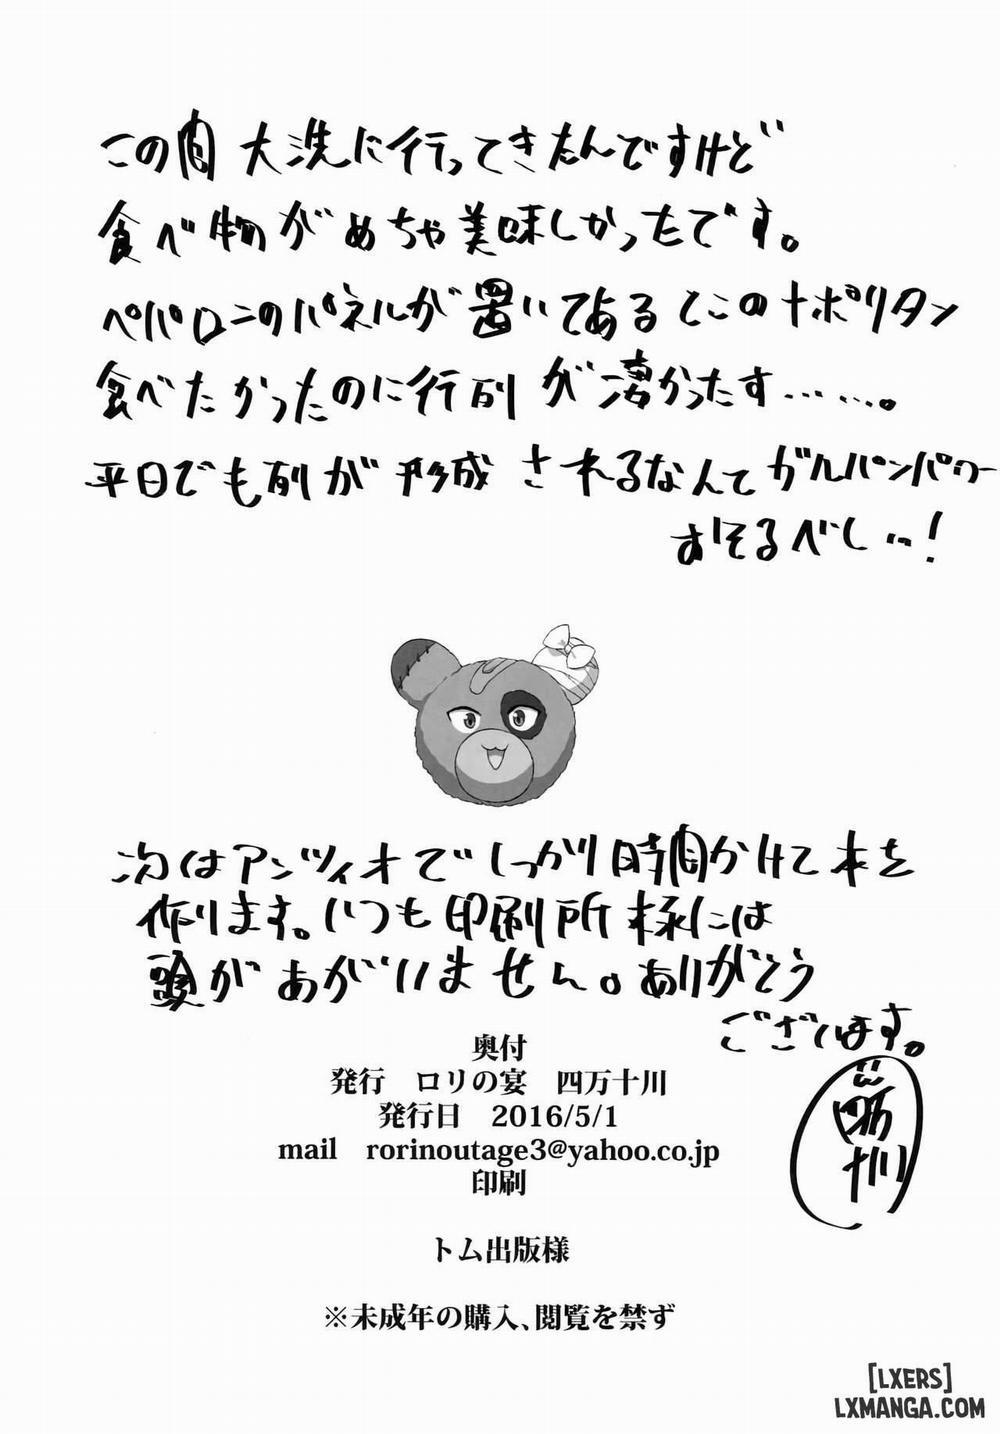 この間 大洗に行ってきたんですけど
食べ物がめちゃ美味しかったです。
ペパロニのパネルが置いてあるとこのナポリタン
食べたかったのに行列が凄かったす……。
平日でも列が形成されるなんてガルパンパワー
おそるべし…！
次はアンツィオでしっかり時間かけて本を
作ります。いつも印刷所様には
頭があがいません。ありがとう
ございます。
四万十川
奥付
発行　ロリの宴　四万十川
発行日　2016/5/1
mail　rorinoutage3@yahoo.co.jp
印刷
トム出版様
※未成年の購入、閲覧を禁ず
[LXERS]
LXMANGA.COM